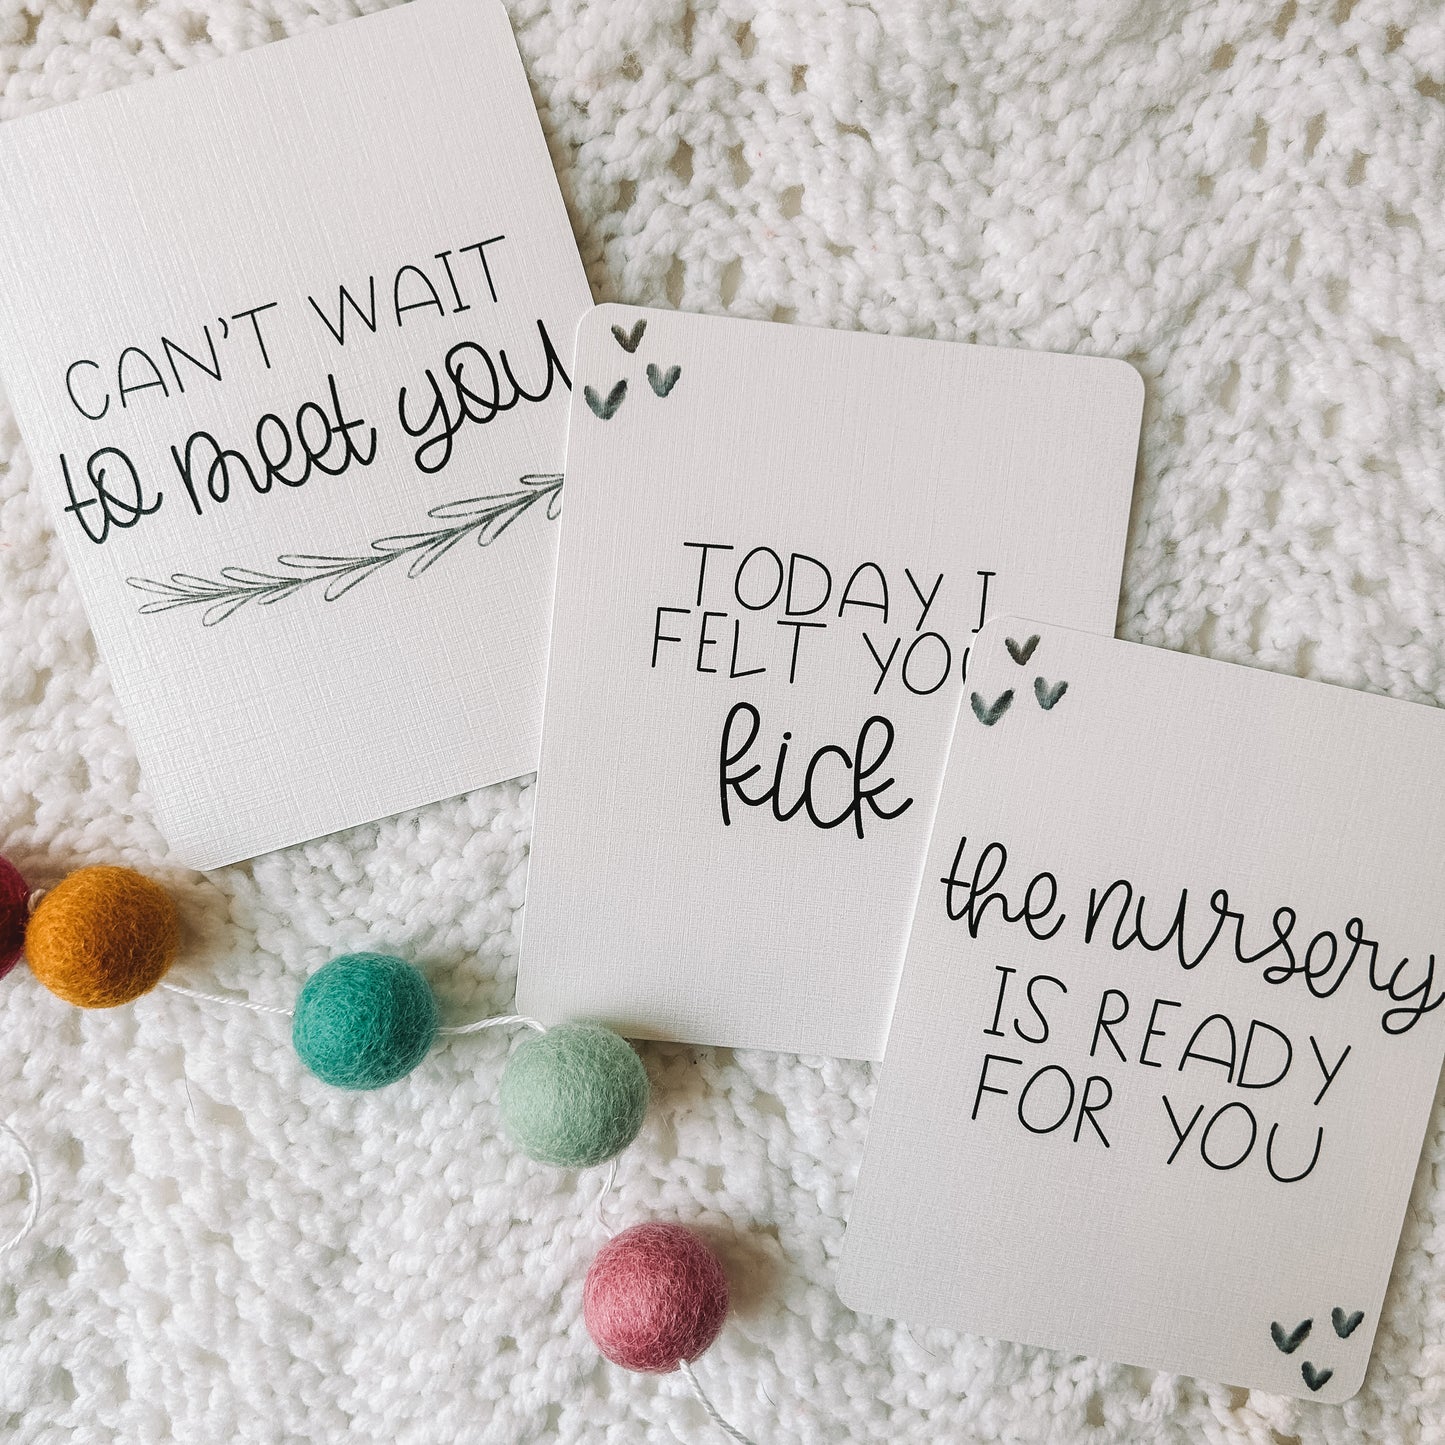 CAN'T WAIT
to meet you
TODAY I
FELT YOU
kick
the nursery
IS READY
FOR YOU